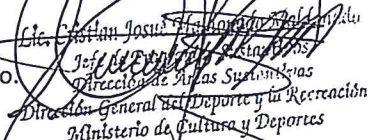 Lic. Cristian Josué Maldonado
Jefe de
o. Dirección de Áreas Sustantivas
Dirección General del Deporte y la Recreación
Ministerio de Cultura y Deportes